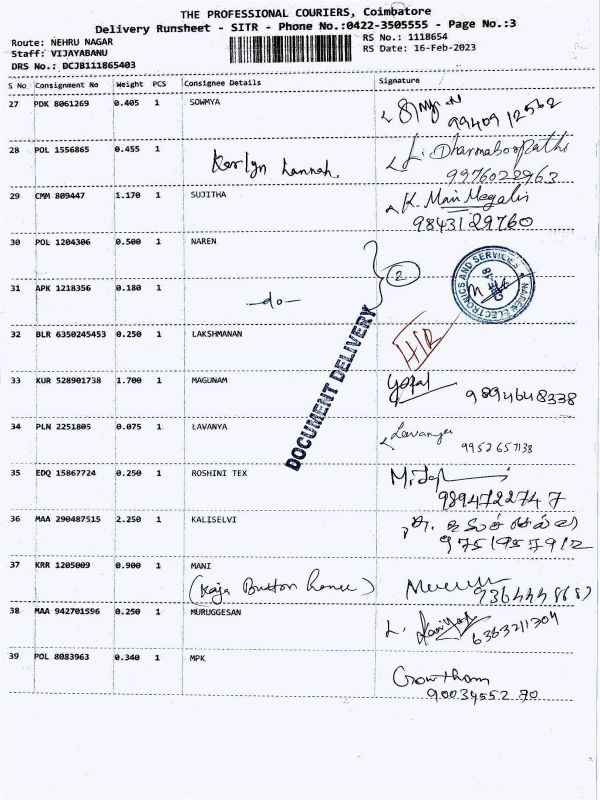 THE PROFESSIONAL COURIERS, Coimbatore
Delivery Runsheet - SITR - Phone No.:0422-3505555 - Page No.:3
Route: NEHRU NAGAR
Staff: VIJAYABANU
DRS No.: DCJB111865403
RS No.: 1118654
RS Date: 16-Feb-2023
S No Consignment No Weight PCS Consignee Details Signature
27 PDK 8061269 0.405 1 SOWMYA
99409 12562
28 POL 1556865 0.455 1
L. Dharmaboopathi
9976022963
29 CMM 809447 1.170 1 SUJITHA K. Mari
9843129760
30 POL 1204306 0.500 1 NAREN
2
31 APK 1218356 0.180 1 -do-
NAGEN ELECTRONICS AND SERVICES
DOCUMENT DELIVERY
32 BLR 6350245453 0.250 1 LAKSHMANAN
33 KUR 528901738 1.700 1 MAGUNAM Gopal
9894648338
34 PLN 2251805 0.075 1 LAVANYA Lavanya
9952657138
35 EDQ 15867724 0.250 1 ROSHINI TEX
9894722747
36 MAA 290487515 2.250 1 KALISELVI
9751957912
37 KRR 1205009 0.900 1 MANI
(Kaja Button
38 MAA 942701596 0.250 1 MURUGGESAN
6383211304
39 POL 8083963 0.340 1 MPK
Gowtham
9003455270